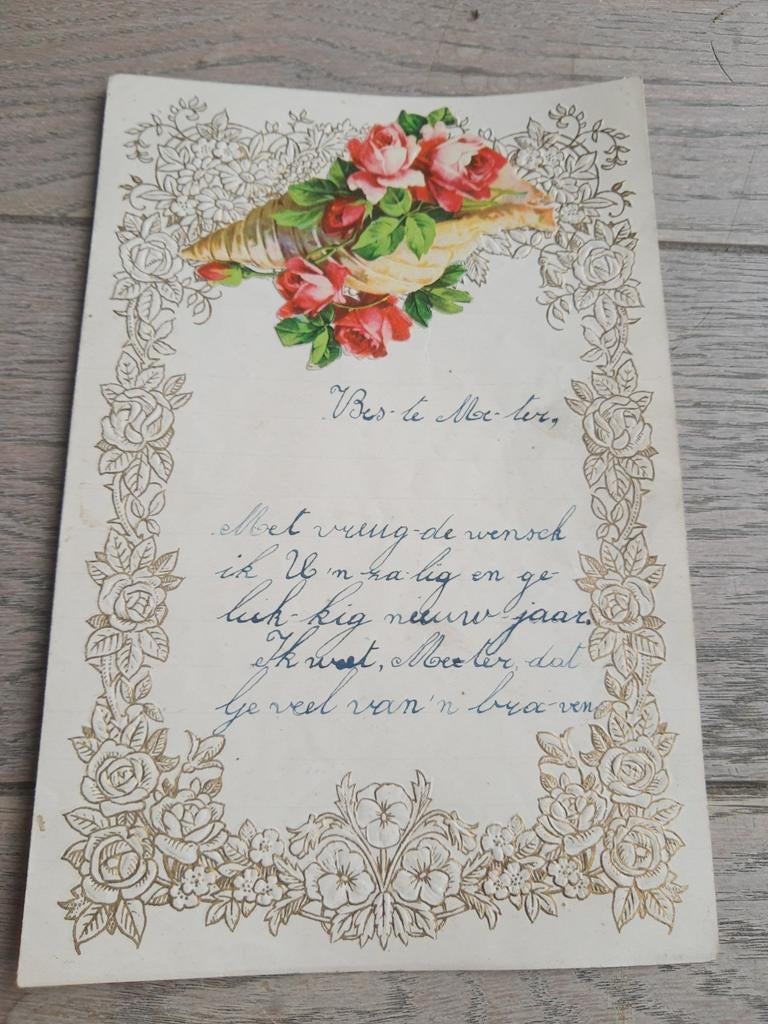 Bes-te Me-ter,
Met vreug-de wensch
ik U 'n za-lig en ge-
luk-kig nieuw-jaar.
Ik weet, Meeter, dat
Ge veel van 'n bra-ven